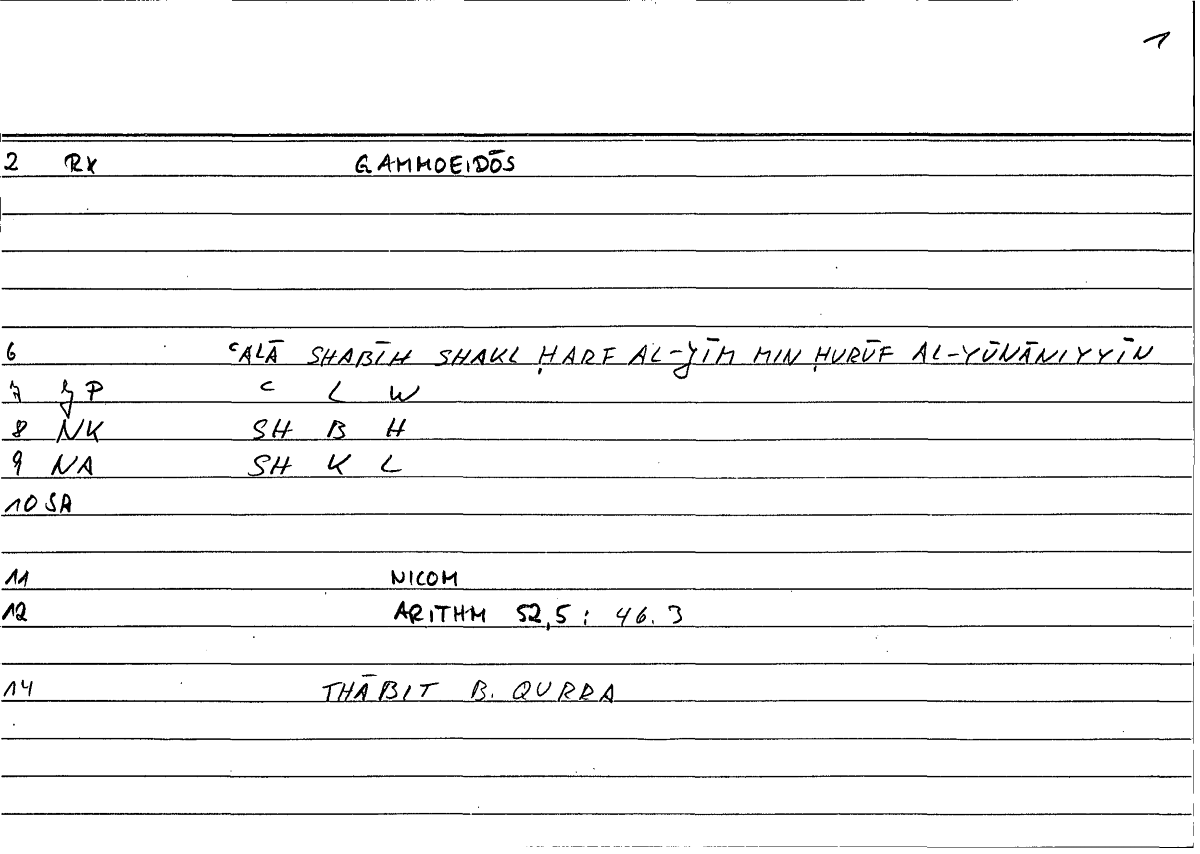 1
2 RX GAMMOEIDŌS
6 ʿALĀ SHABĪH SHAKL ḤARF AL-ǦĪM MIN ḤURŪF AL-YŪNĀNIYYĪN
7 ǦP ʿ L W
8 NK SH B H
9 NA SH K L
10 SA
11 NICOM
12 ARITHM 52,5 : 46.3
14 THĀBIT B. QURRA